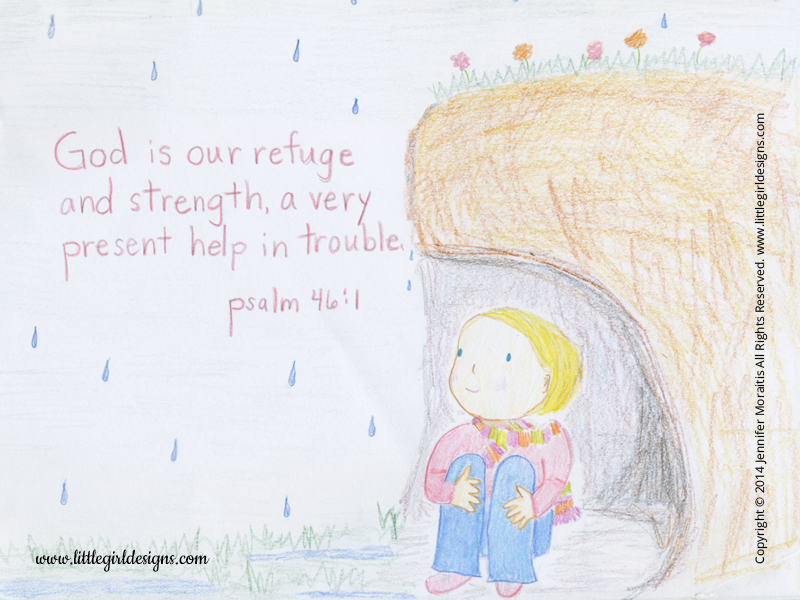 God is our refuge
and strength, a very
present help in trouble.
psalm 46:1
www.littlegirldesigns.com
Copyright © 2014 Jennifer Moraitis All Rights Reserved. www.littlegirldesigns.com